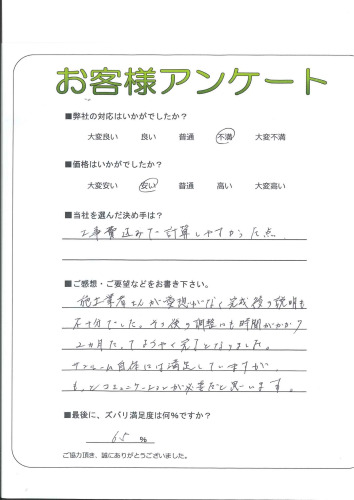 お客様アンケート
■弊社の対応はいかがでしたか?
大変良い 良い 普通 不満 大変不満
■価格はいかがでしたか?
大変安い 安い 普通 高い 大変高い
■当社を選んだ決め手は?
工事費込みで計算しやすかった点
■ご感想・ご要望などをお書き下さい。
施工業者さんが愛想がなく完成後の説明も
不十分でした。その後の調整にも時間がかかり
2ヶ月たってようやく完了となりました。
サンルーム自体には満足していますが
もっとコミュニケーションが必要だと思います。
■最後に、ズバリ満足度は何%ですか?
65 %
ご協力頂き、誠にありがとうございました。